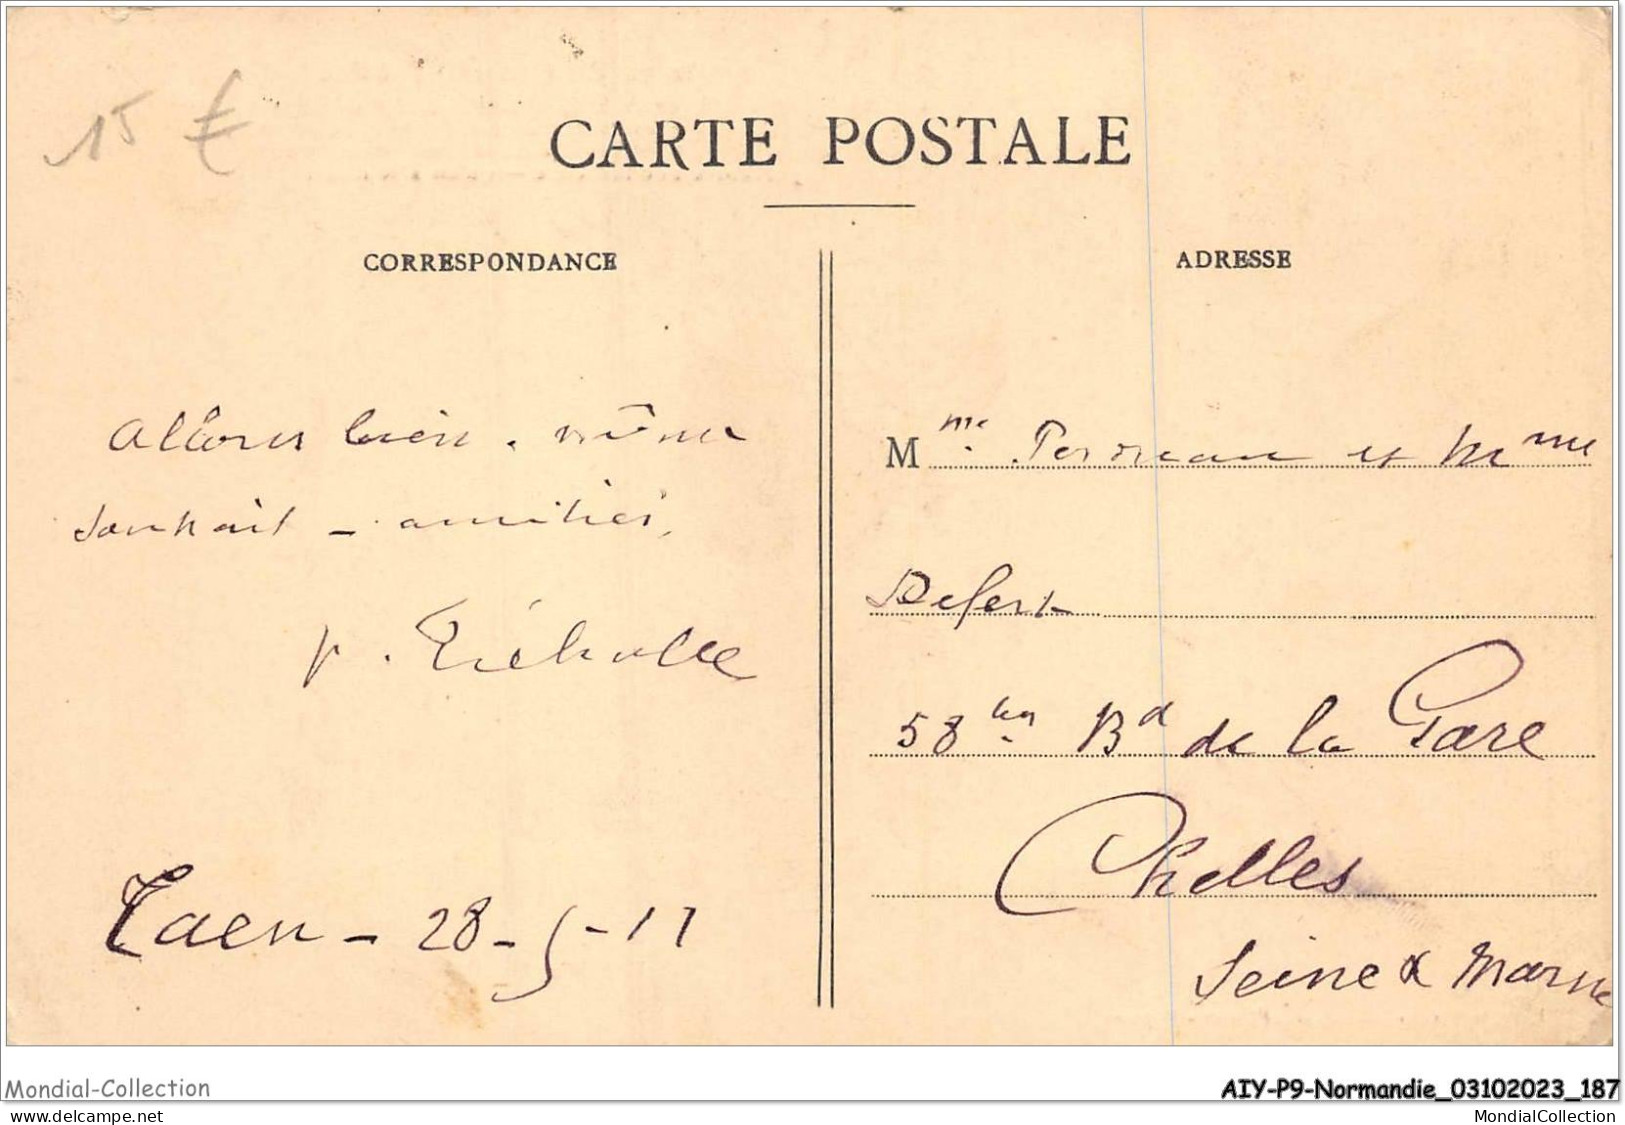 15 €
CARTE POSTALE
CORRESPONDANCE
allons bien. même
souhait - amitiés,
Caen - 28-5-11
ADRESSE
Mme. et Mme
Defert
58 ter Bd de la Gare
Chelles
Seine & Marne
Mondial-Collection
AIY-P9-Normandie_03102023_187
www.delcampe.net
MondialCollection